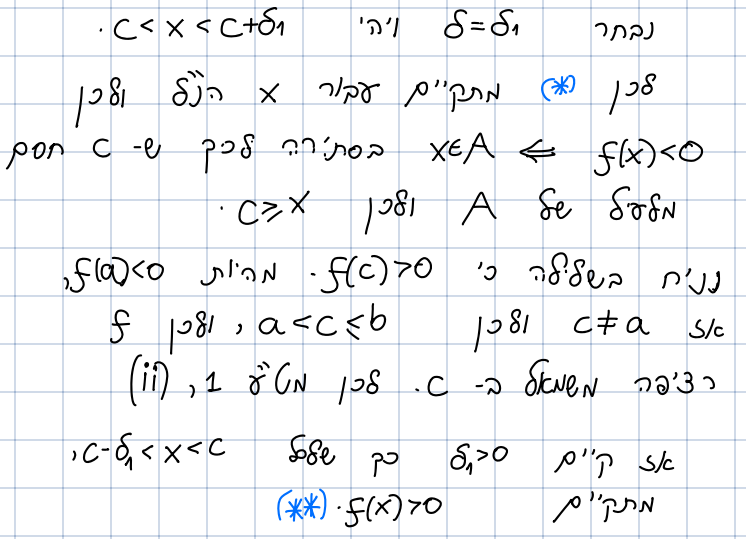 נבחר δ=δ₁ ויהי c < x < c+δ₁.
לכן (*) מתקיים עבור x הנ"ל ולכן
f(x)<0 ⇐ x∈A בסתירה לכך ש- c חסם
מלעיל של A ולכן c⩾x.
נניח בשלילה כי f(c)>0. מהיות f(a)<0,
אז c≠a ולכן a<c≤b, ולכן f
רציפה משמאל ב- c. לכן מט"ע 1, (ii)
אז קיים δ₁>0 כך שלכל c-δ₁<x<c,
מתקיים f(x)>0. (**)